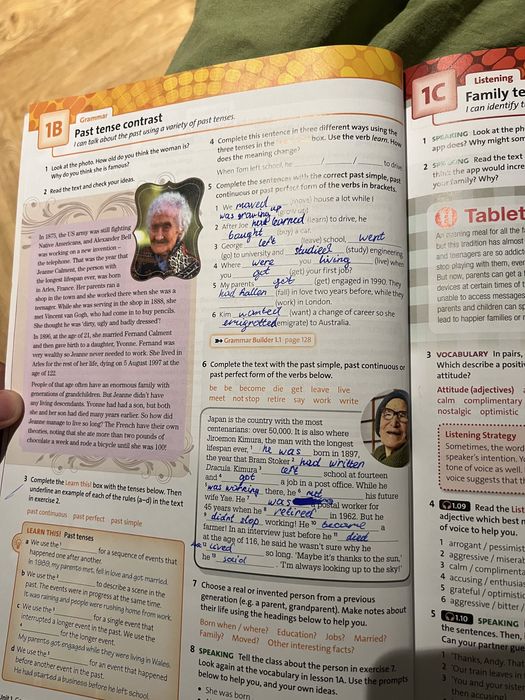 1B
Grammar
Past tense contrast
I can talk about the past using a variety of past tenses.
1 Look at the photo. How old do you think the woman is?
Why do you think she is famous?
2 Read the text and check your ideas.
In 1875, the US army was still fighting
Native Americans, and Alexander Bell
was working on a new invention –
the telephone. That was the year that
Jeanne Calment, the person with
the longest lifespan ever, was born
in Arles, France. Her parents ran a
shop in the town and she worked there when she was a
teenager. While she was serving in the shop in 1888, she
met Vincent van Gogh, who had come in to buy pencils.
She thought he was 'dirty, ugly and badly dressed'!
In 1896, at the age of 21, she married Fernand Calment
and then gave birth to a daughter, Yvonne. Fernand was
very wealthy so Jeanne never needed to work. She lived in
Arles for the rest of her life, dying on 5 August 1997 at the
age of 122.
People of that age often have an enormous family with
generations of grandchildren. But Jeanne didn't have
any living descendants. Yvonne had had a son, but both
she and her son had died many years earlier. So how did
Jeanne manage to live so long? The French have their own
theories, noting that she ate more than two pounds of
chocolate a week and rode a bicycle until she was 100!
3 Complete the Learn this! box with the tenses below. Then
underline an example of each of the rules (a–d) in the text
in exercise 2.
past continuous past perfect past simple
LEARN THIS! Past tenses
a We use the 1 for a sequence of events that
happened one after another.
In 1989, my parents met, fell in love and got married.
b We use the 2 to describe a scene in the
past. The events were in progress at the same time.
It was raining and people were rushing home from work.
c We use the 3 for a single event that
interrupted a longer event in the past. We use the
for the longer event.
My parents got engaged while they were living in Wales.
d We use the for an event that happened
before another event in the past.
He had started a business before he left school.
4 Complete this sentence in three different ways using the
three tenses in the box. Use the verb learn. How
does the meaning change?
When Tom left school, he / / to drive
5 Complete the sentences with the correct past simple, past
continuous or past perfect form of the verbs in brackets.
1 We moved (move) house a lot while I
was growing up
2 After Joe had learned (learn) to drive, he
bought (buy) a car.
3 George left (leave) school, went
(go) to university and studied (study) engineering
4 Where were you living (live) when
you got (get) your first job?
5 My parents get (get) engaged in 1990. They
had fallen (fall) in love two years before, while they
(work) in London.
6 Kim wanted (want) a change of career so she
emigrotted (emigrate) to Australia.
Grammar Builder 1.1 page 128
6 Complete the text with the past simple, past continuous or
past perfect form of the verbs below.
be be become die get leave live
meet not stop retire say work write
Japan is the country with the most
centenarians: over 50,000. It is also where
Jiroemon Kimura, the man with the longest
lifespan ever, 1 he was born in 1897,
the year that Bram Stoker 2 had written
Dracula. Kimura 3 left school at fourteen
and 4 got a job in a post office. While he
5 was working there, he 6 met his future
wife Yae. He 7 was a postal worker for
45 years when he 8 retired in 1962. But he
9 didn't stop working! He 10 became a
farmer! In an interview just before he 11 died
at the age of 116, he said he wasn't sure why he
lived so long. 'Maybe it's thanks to the sun,'
he 13 said. 'I'm always looking up to the sky!'
7 Choose a real or invented person from a previous
generation (e.g. a parent, grandparent). Make notes about
their life using the headings below to help you.
Born when / where? Education? Jobs? Married?
Family? Moved? Other interesting facts?
8 SPEAKING Tell the class about the person in exercise 7.
Look again at the vocabulary in lesson 1A. Use the prompts
below to help you, and your own ideas.
• She was born
1C
Listening
Family te
I can identify t
1 SPEAKING Look at the ph
app does? Why might som
2 SPEAKING Read the text
think the app would incre
your family? Why?
Tablet
An evening meal for all the fa
but this tradition has almost
and teenagers are so addicte
stop playing with them, even
But now, parents can get a
devices at certain times of t
unable to access messages
parents and children can sp
lead to happier families or r
3 VOCABULARY In pairs,
Which describe a positiv
attitude?
Attitude (adjectives)
calm complimentary
nostalgic optimistic
Listening Strategy
Sometimes, the word
speaker's intention. Yo
tone of voice as well.
voice suggests that th
4 1.09 Read the List
adjective which best m
of voice to help you.
1 arrogant / pessimist
2 aggressive / miserab
3 calm / complimenta
4 accusing / enthusias
5 grateful / optimistic
6 aggressive / bitter /
5 1.10 SPEAKING
the sentences. Then,
Can your partner gue
1 'Thanks, Andy. That
2 'Our train leaves in
3 'You and your siste